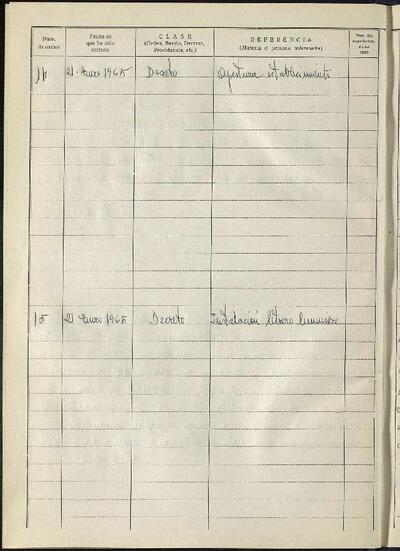 Núm. de orden
Fecha en que ha sido dictado
CLASE
(Orden, Bando, Decreto, Providencia, etc.)
REFERENCIA
(Materia o persona interesada)
Núm. del
14 21 Enero 1965 Decreto Apertura establecimiento
15 21 Enero 1965 Decreto Instalación letrero luminoso